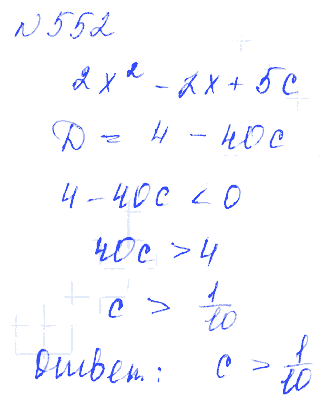 N 552
2x² - 2x + 5c
D = 4 - 40c
4 - 40c < 0
40c > 4
c > 1/10
Ответ: c > 1/10